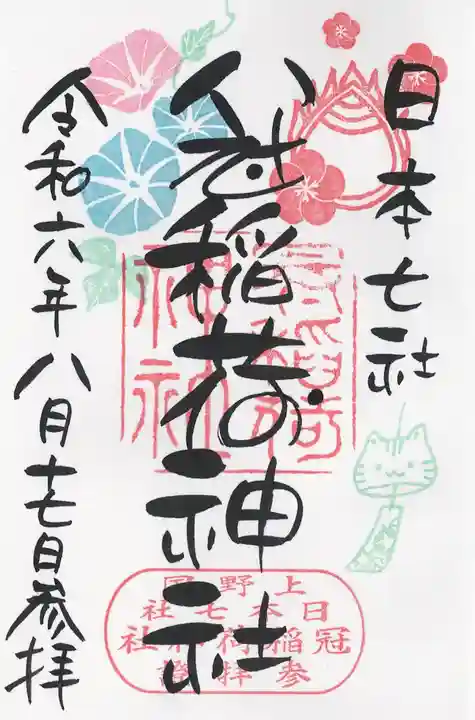 日本七社
冠稲荷神社
令和六年八月十七日参拝
上野国
日本七社
冠稲荷神社
参拝證